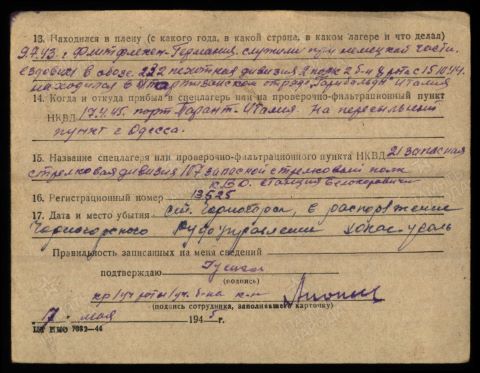 13. Находился в плену (с какого года, в какой стране, в каком лагере и что делал)
9.7.43 г. Германия. служили при немецкой части.
ездовой в обозе. 232 пехотная дивизия 2 полк 2 б-н 4 рота с 15.10.44.
находился в партизанском отряде "Гарибольди" Италия
14. Когда и откуда прибыл в спецлагерь или на проверочно-фильтрационный пункт
НКВД 17.4.45. порт Тарант-Италия. На пересыльный
пункт г. Одесса.
15. Название спецлагеря или проверочно-фильтрационного пункта НКВД 21 запасная
стрелковая дивизия 107 запасной стрелковый полк
станция Белокоровичи
16. Регистрационный номер 13525
17. Дата и место убытия ст. Черногорск, в распоряжение
Черногорского Рудоуправления Хакас-уголь
Правильность записанных на меня сведений
подтверждаю
(подпись)
(подпись сотрудника, заполнявшего карточку)
17 мая 1945 г.
7082—44